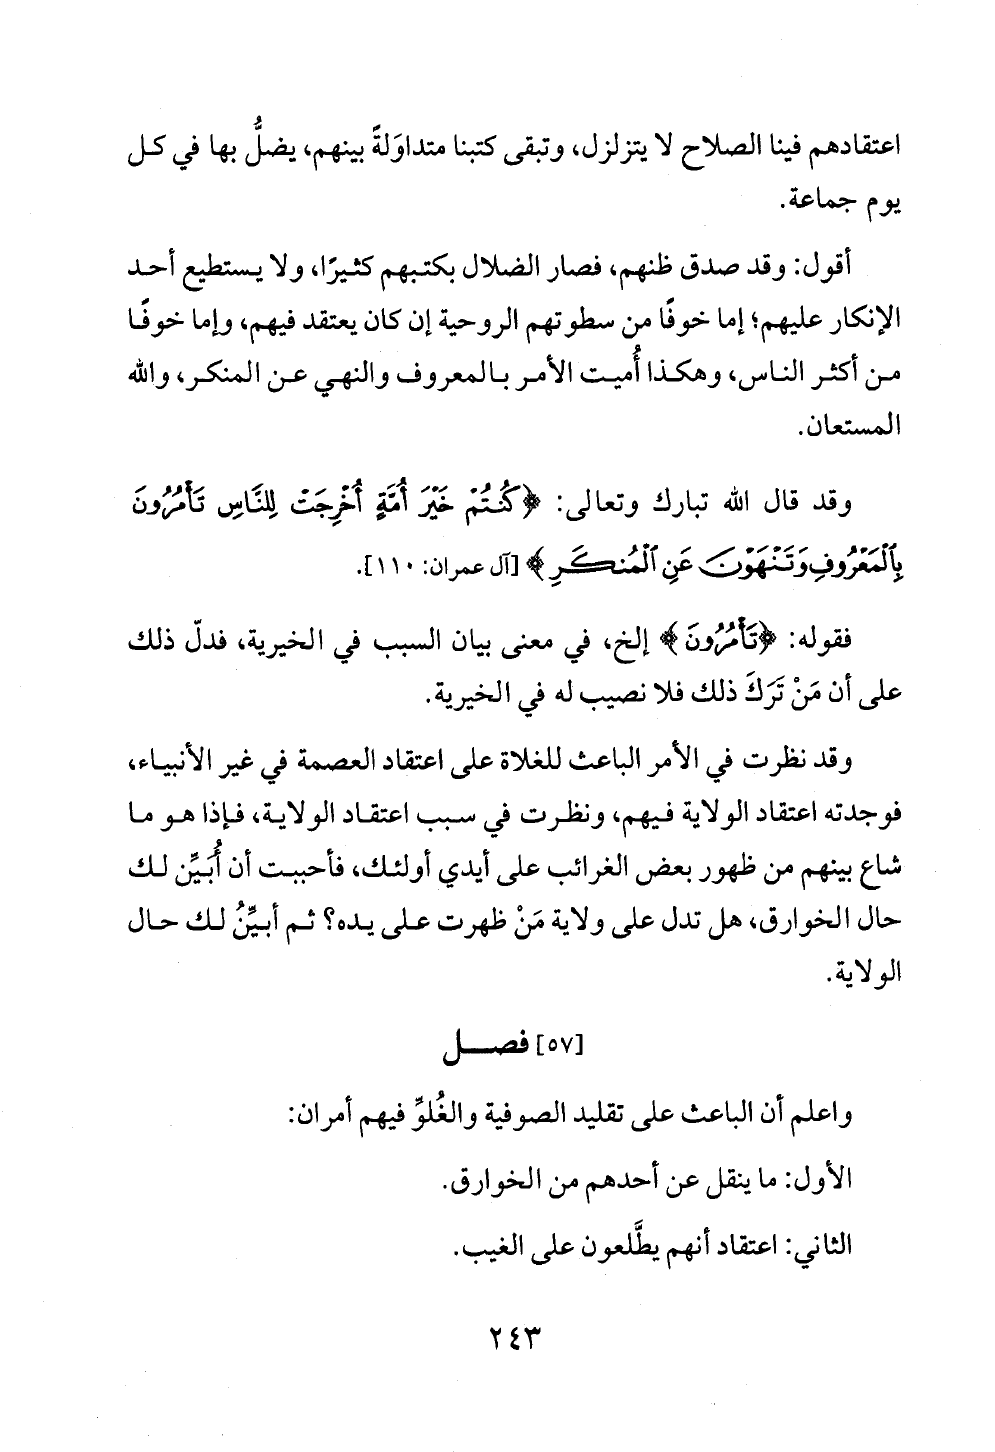 اعتقادهم فينا الصلاح لا يتزلزل، وتبقى كتبنا متداوَلةً بينهم، يضلُّ بها في كل
يوم جماعة.
أقول: وقد صدق ظنهم، فصار الضلال بكتبهم كثيرًا، ولا يستطيع أحد
الإنكار عليهم؛ إما خوفًا من سطوتهم الروحية إن كان يعتقد فيهم، وإما خوفًا
من أكثر الناس، وهكذا أُميت الأمر بالمعروف والنهي عن المنكر، والله
المستعان.
وقد قال الله تبارك وتعالى: ﴿كُنتُمْ خَيْرَ أُمَّةٍ أُخْرِجَتْ لِلنَّاسِ تَأْمُرُونَ
بِٱلْمَعْرُوفِ وَتَنْهَوْنَ عَنِ ٱلْمُنكَرِ﴾ [آل عمران: ١١٠].
فقوله: ﴿تَأْمُرُونَ﴾ إلخ، في معنى بيان السبب في الخيرية، فدلّ ذلك
على أن مَنْ تَرَكَ ذلك فلا نصيب له في الخيرية.
وقد نظرت في الأمر الباعث للغلاة على اعتقاد العصمة في غير الأنبياء،
فوجدته اعتقاد الولاية فيهم، ونظرت في سبب اعتقاد الولاية، فإذا هو ما
شاع بينهم من ظهور بعض الغرائب على أيدي أولئك، فأحببت أن أُبَيِّن لك
حال الخوارق، هل تدل على ولاية مَنْ ظهرت على يده؟ ثم أبيِّنُ لك حال
الولاية.
[٥٧] فصل
واعلم أن الباعث على تقليد الصوفية والغُلوِّ فيهم أمران:
الأول: ما ينقل عن أحدهم من الخوارق.
الثاني: اعتقاد أنهم يطَّلعون على الغيب.
٢٤٣